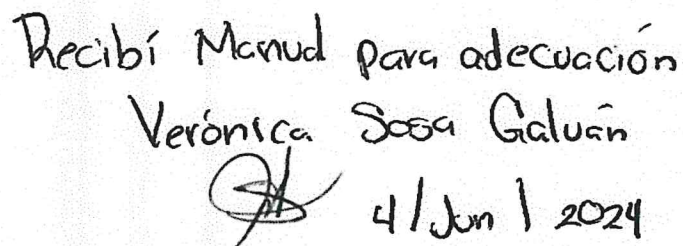 Recibí Manual para adecuación
Verónica Sosa Galván
4/Jun/2024